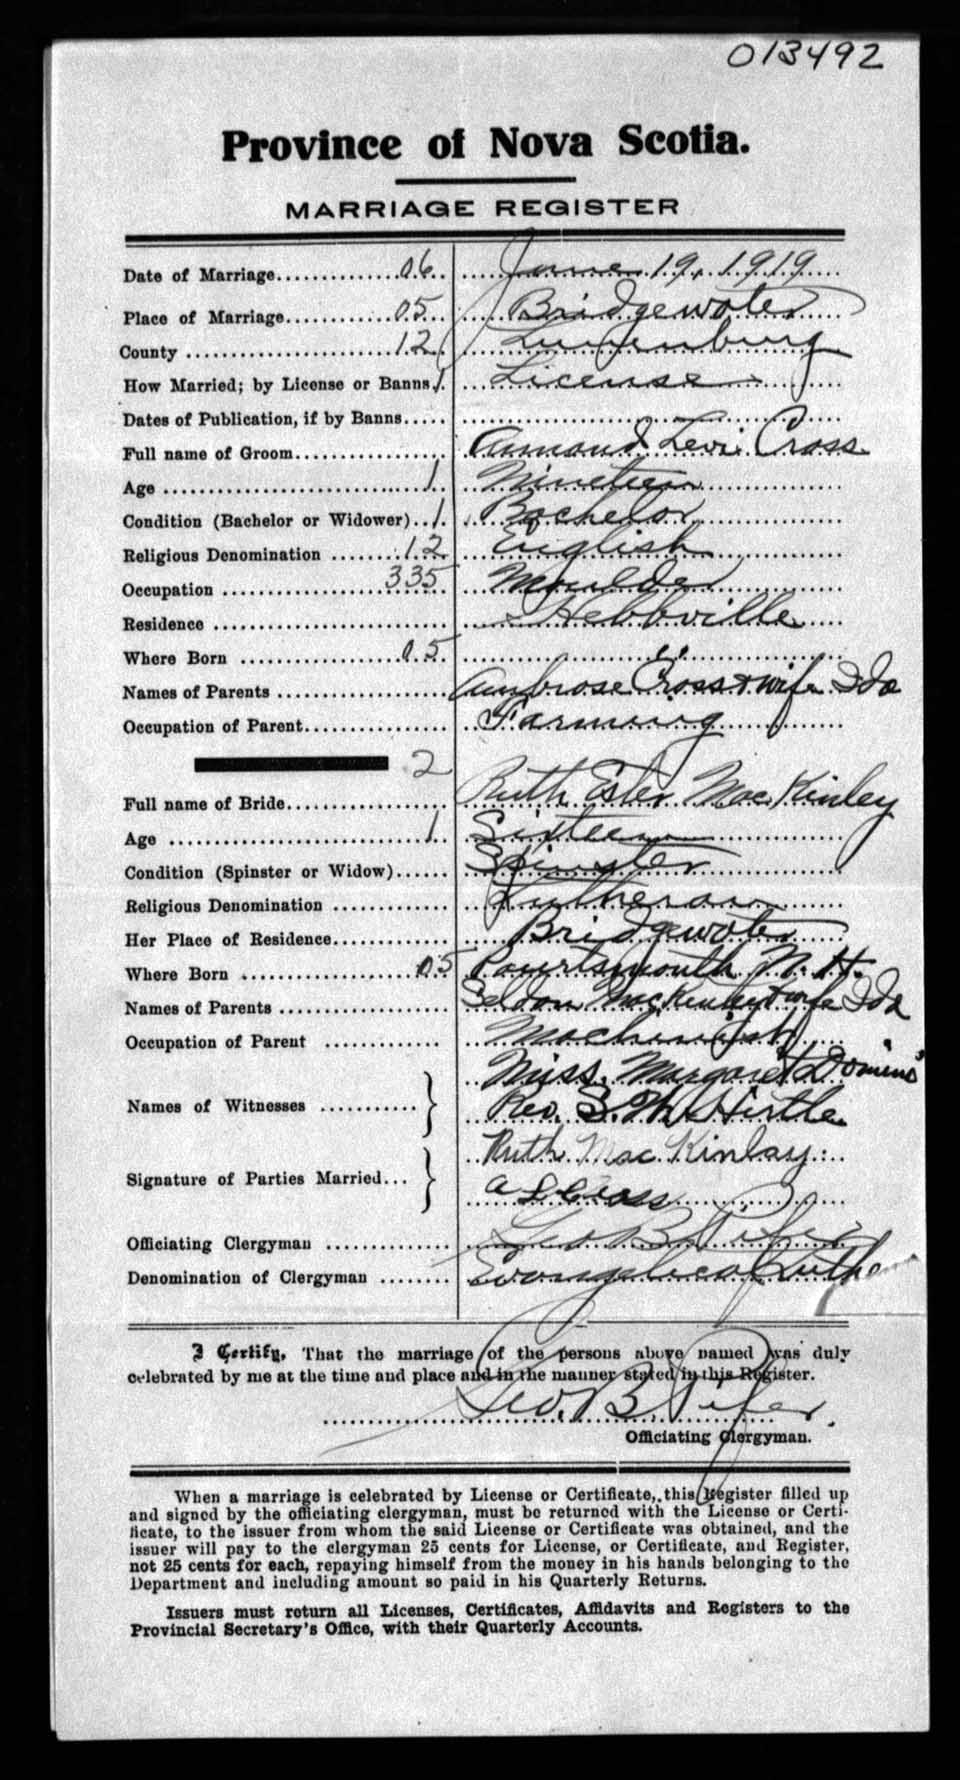 013492
Province of Nova Scotia.
MARRIAGE REGISTER
Date of Marriage 06 June 19, 1919
Place of Marriage 05 Bridgewater
County 12 Lunenburg
How Married; by License or Banns 1 License
Dates of Publication, if by Banns
Full name of Groom Armond Levi Cross
Age 1 Nineteen
Condition (Bachelor or Widower) 1 Bachelor
Religious Denomination 12 English
Occupation 335 Moulder
Residence Hebbville
Where Born 05 "
Names of Parents Ambrose Cross & wife Ida
Occupation of Parent Farming
2
Full name of Bride Ruth Ester MacKinley
Age 1 Sixteen
Condition (Spinster or Widow) Spinster
Religious Denomination Lutheran
Her Place of Residence Bridgewater
Where Born 05 Pourtsmouth N. H.
Names of Parents Seldon MacKinley & wife Ida
Occupation of Parent Machinist
Miss. Margaret
Names of Witnesses
Rev. S. M. Hirtle
Ruth MacKinlay
Signature of Parties Married
A L Cross
Officiating Clergyman Geo B Pifer
Denomination of Clergyman Evangelical Luth
I Certify, That the marriage of the persons above named was duly
celebrated by me at the time and place and in the manner stated in this Register.
Geo. B. Pifer.
Officiating Clergyman.
When a marriage is celebrated by License or Certificate, this Register filled up
and signed by the officiating clergyman, must be returned with the License or Certi-
ficate, to the issuer from whom the said License or Certificate was obtained, and the
issuer will pay to the clergyman 25 cents for License, or Certificate, and Register,
not 25 cents for each, repaying himself from the money in his hands belonging to the
Department and including amount so paid in his Quarterly Returns.
Issuers must return all Licenses, Certificates, Affidavits and Registers to the
Provincial Secretary's Office, with their Quarterly Accounts.